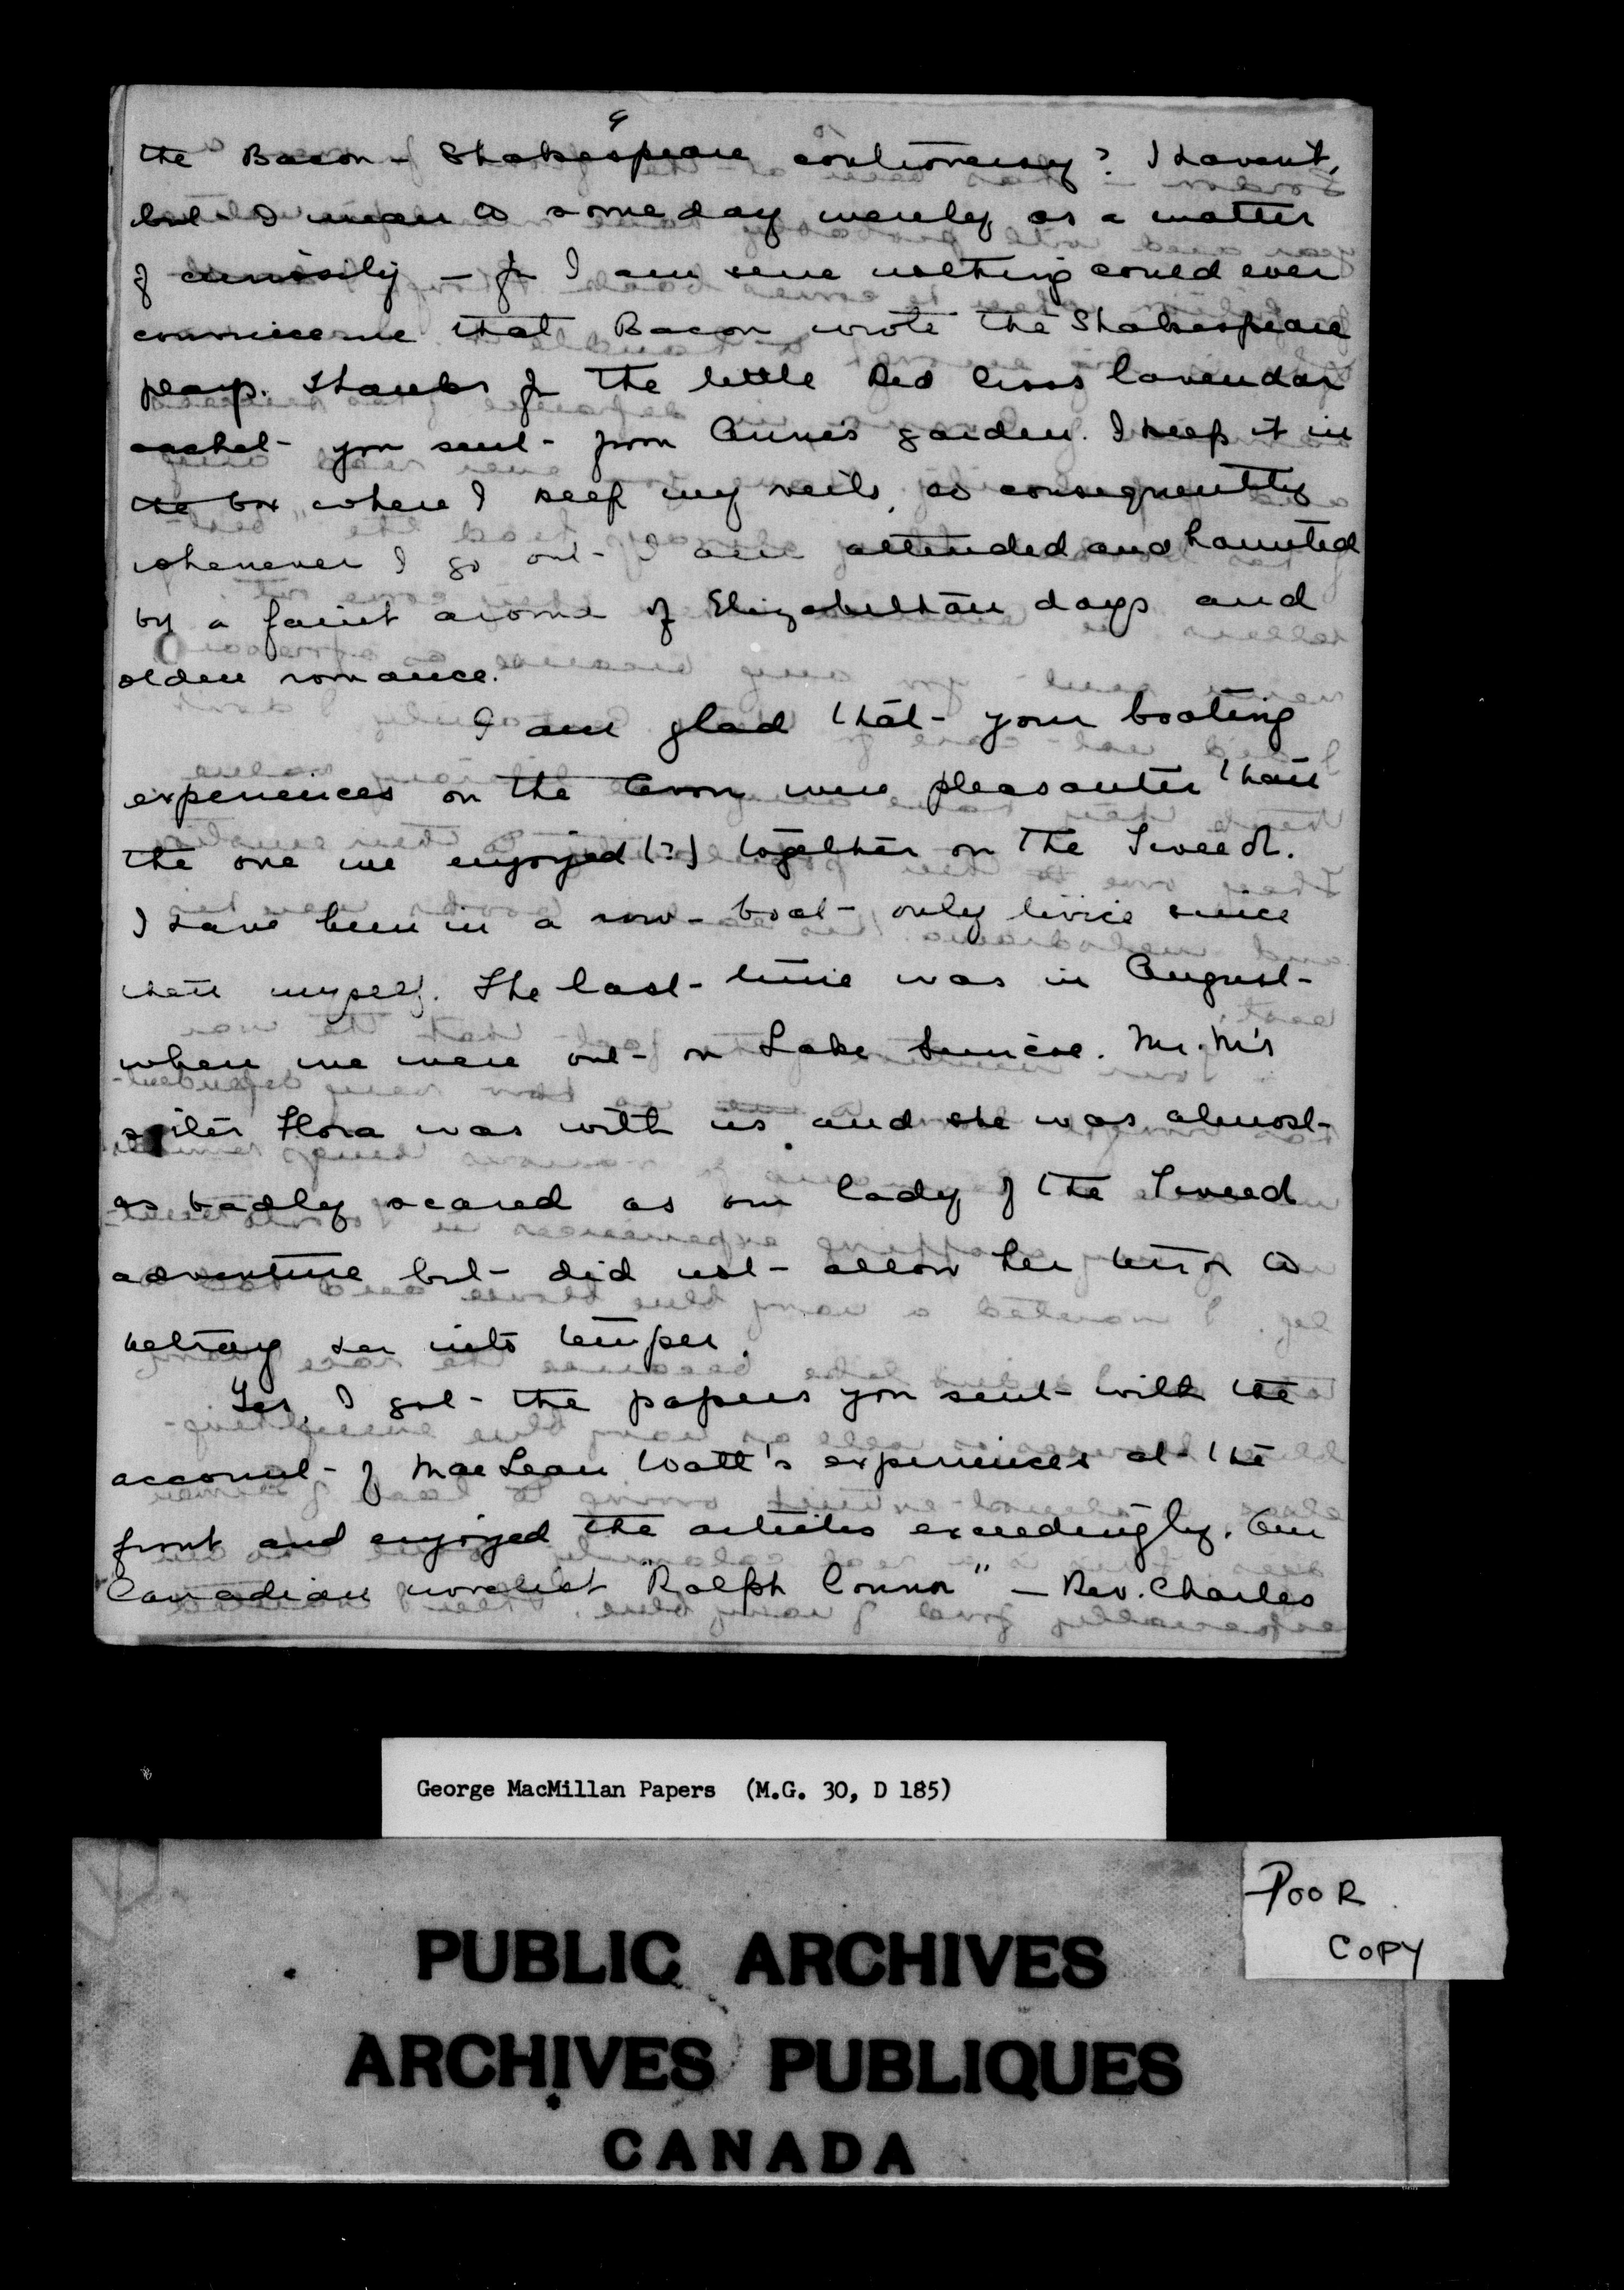 9
the Bacon - Shakespeare controversy? I haven't,
but I mean to some day, merely as a matter
of curiosity - for I am sure nothing could ever
convince me that Bacon wrote the Shakespeare
plays. Thanks for the little Red Cross lavendar
sachet you sent from Anne's garden. I keep it in
the box where I keep my veils, so consequently
whenever I go out I am attended and haunted
by a faint aroma of Elizabethan days and
olden romance.
I am glad that your boating
experiences on the Avon were pleasanter than
the one we enjoyed (?) together on the Tweed.
I have been in a row-boat only twice since
then myself. The last time was in August
when we were out on Lake Simcoe. Mr. M's
sister Flora was with us and she was almost
as badly scared as our lady of the Tweed
adventure but did not allow her terror to
betray her into temper.
Yes, I got the papers you sent with the
account of MacLean Watt's experiences at the
front and enjoyed the articles exceedingly. Our
Canadian novelist "Ralph Connor" - Rev. Charles
George MacMillan Papers (M.G. 30, D 185)
POOR
COPY
PUBLIC ARCHIVES
ARCHIVES PUBLIQUES
CANADA